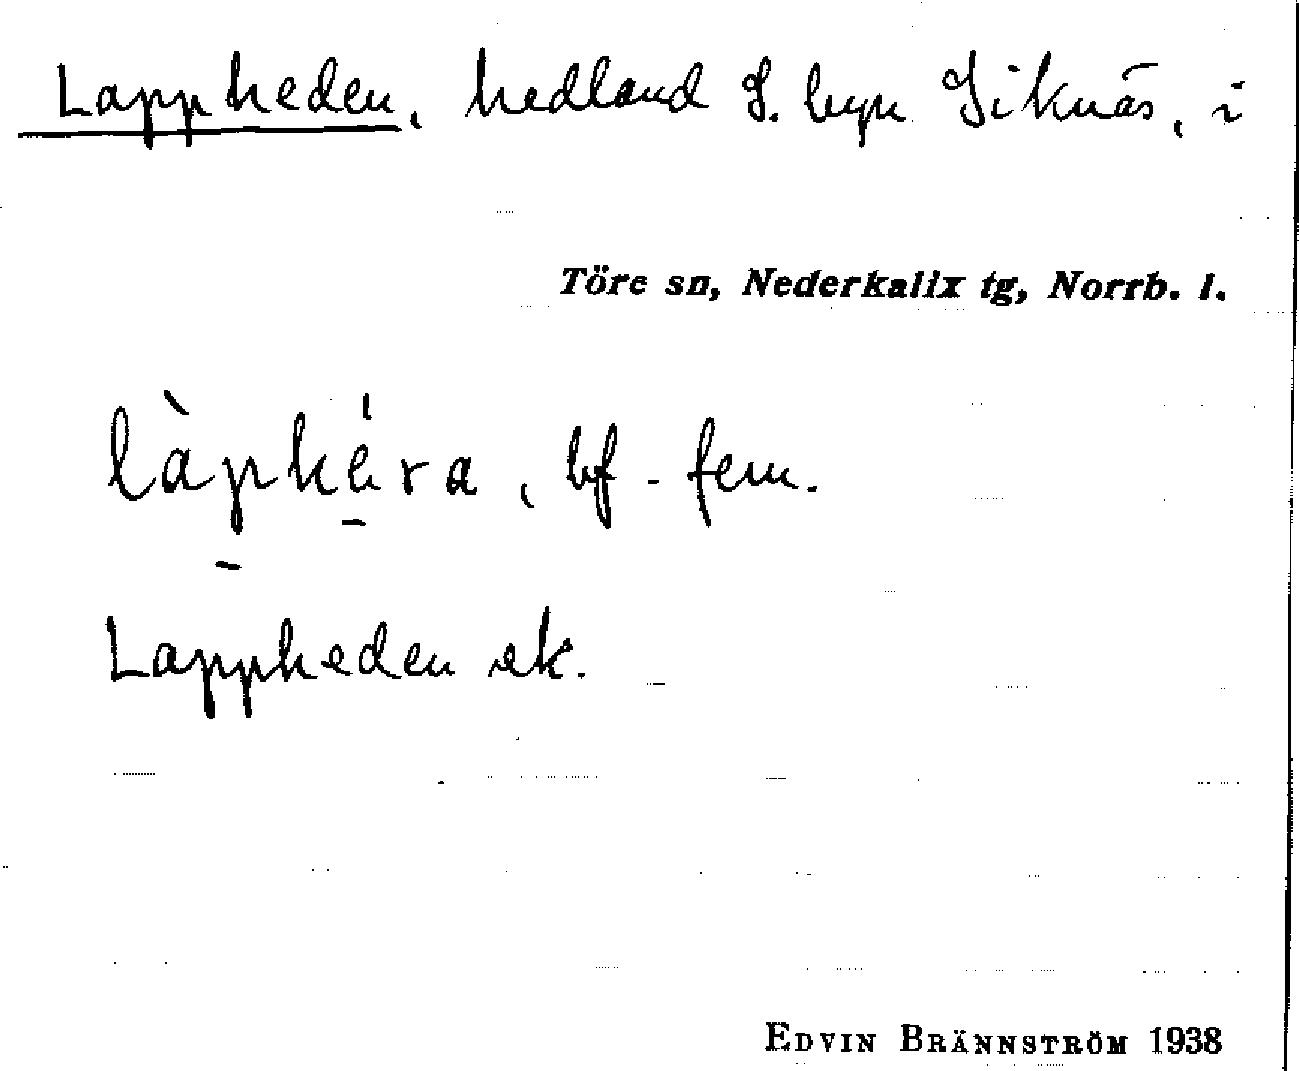 Lappheden, hedland S. byn Siknäs, i
Töre sn, Nederkalix tg, Norrb. l.
làp̱hé̱ra, bf. fem.
Lappheden ek.
EDVIN BRÄNNSTRÖM 1938